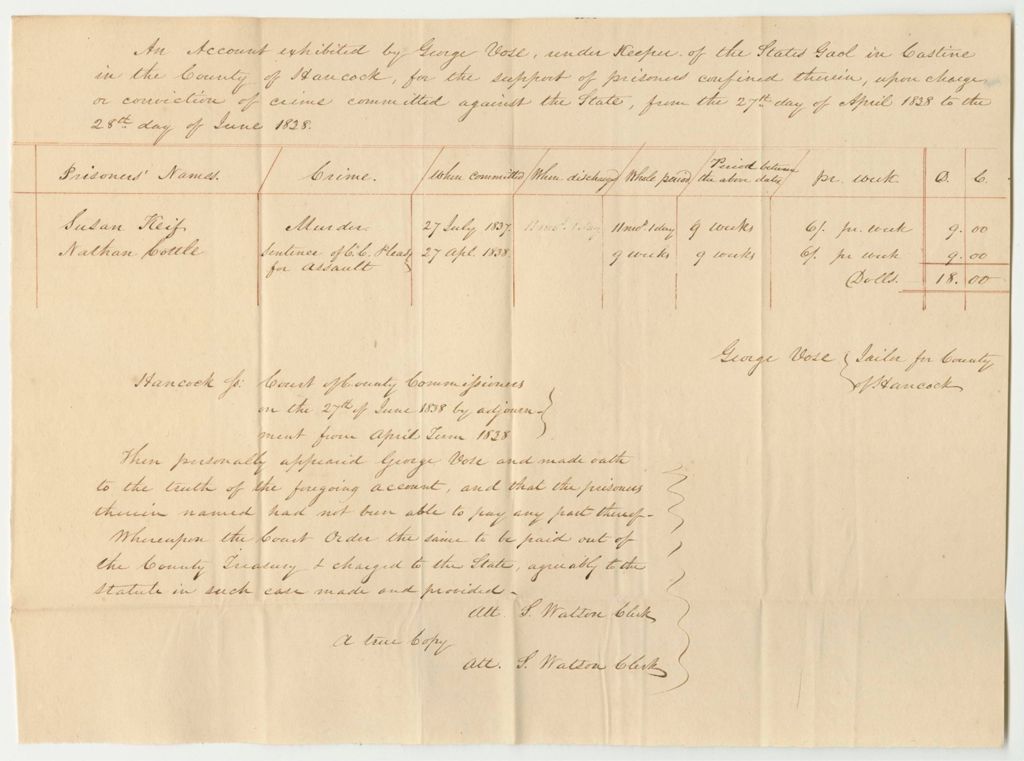 An Account exhibited by George Vose, under Keeper of the States Gaol in Castine
in the County of Hancock, for the support of prisoners confined therein, upon charge
or conviction of crime committed against the State, from the 27th day of April 1838 to the
28th day of June 1838.
Prisoners' Names. Crime. When committed When discharg Whole period Period between the above dates pr. week D. C.
Susan Keif Murder 27 July 1837. 11 mos. 1 day 11 mos. 1 day 9 weeks 6/. pr. week 9.00
Nathan Cottle Sentence of C.C. Pleas 27 Apl. 1838 9 weeks 9 weeks 6/. pr week 9.00
for assault
Dolls. 18.00
George Vose Jailer for County
of Hancock
Hancock Ss: Court of County Commissioners
on the 27th of June 1838 by adjourn-
ment from April Term 1838
Then personally appeared George Vose and made oath
to the truth of the foregoing account, and that the prisoners
therein named had not been able to pay any part thereof-
Whereupon the Court Order the same to be paid out of
the County Treasury & charged to the State, agreeably to the
statute in such case made and provided-
Att. S. Watson Clerk
A true Copy
Att. S. Watson Clerk